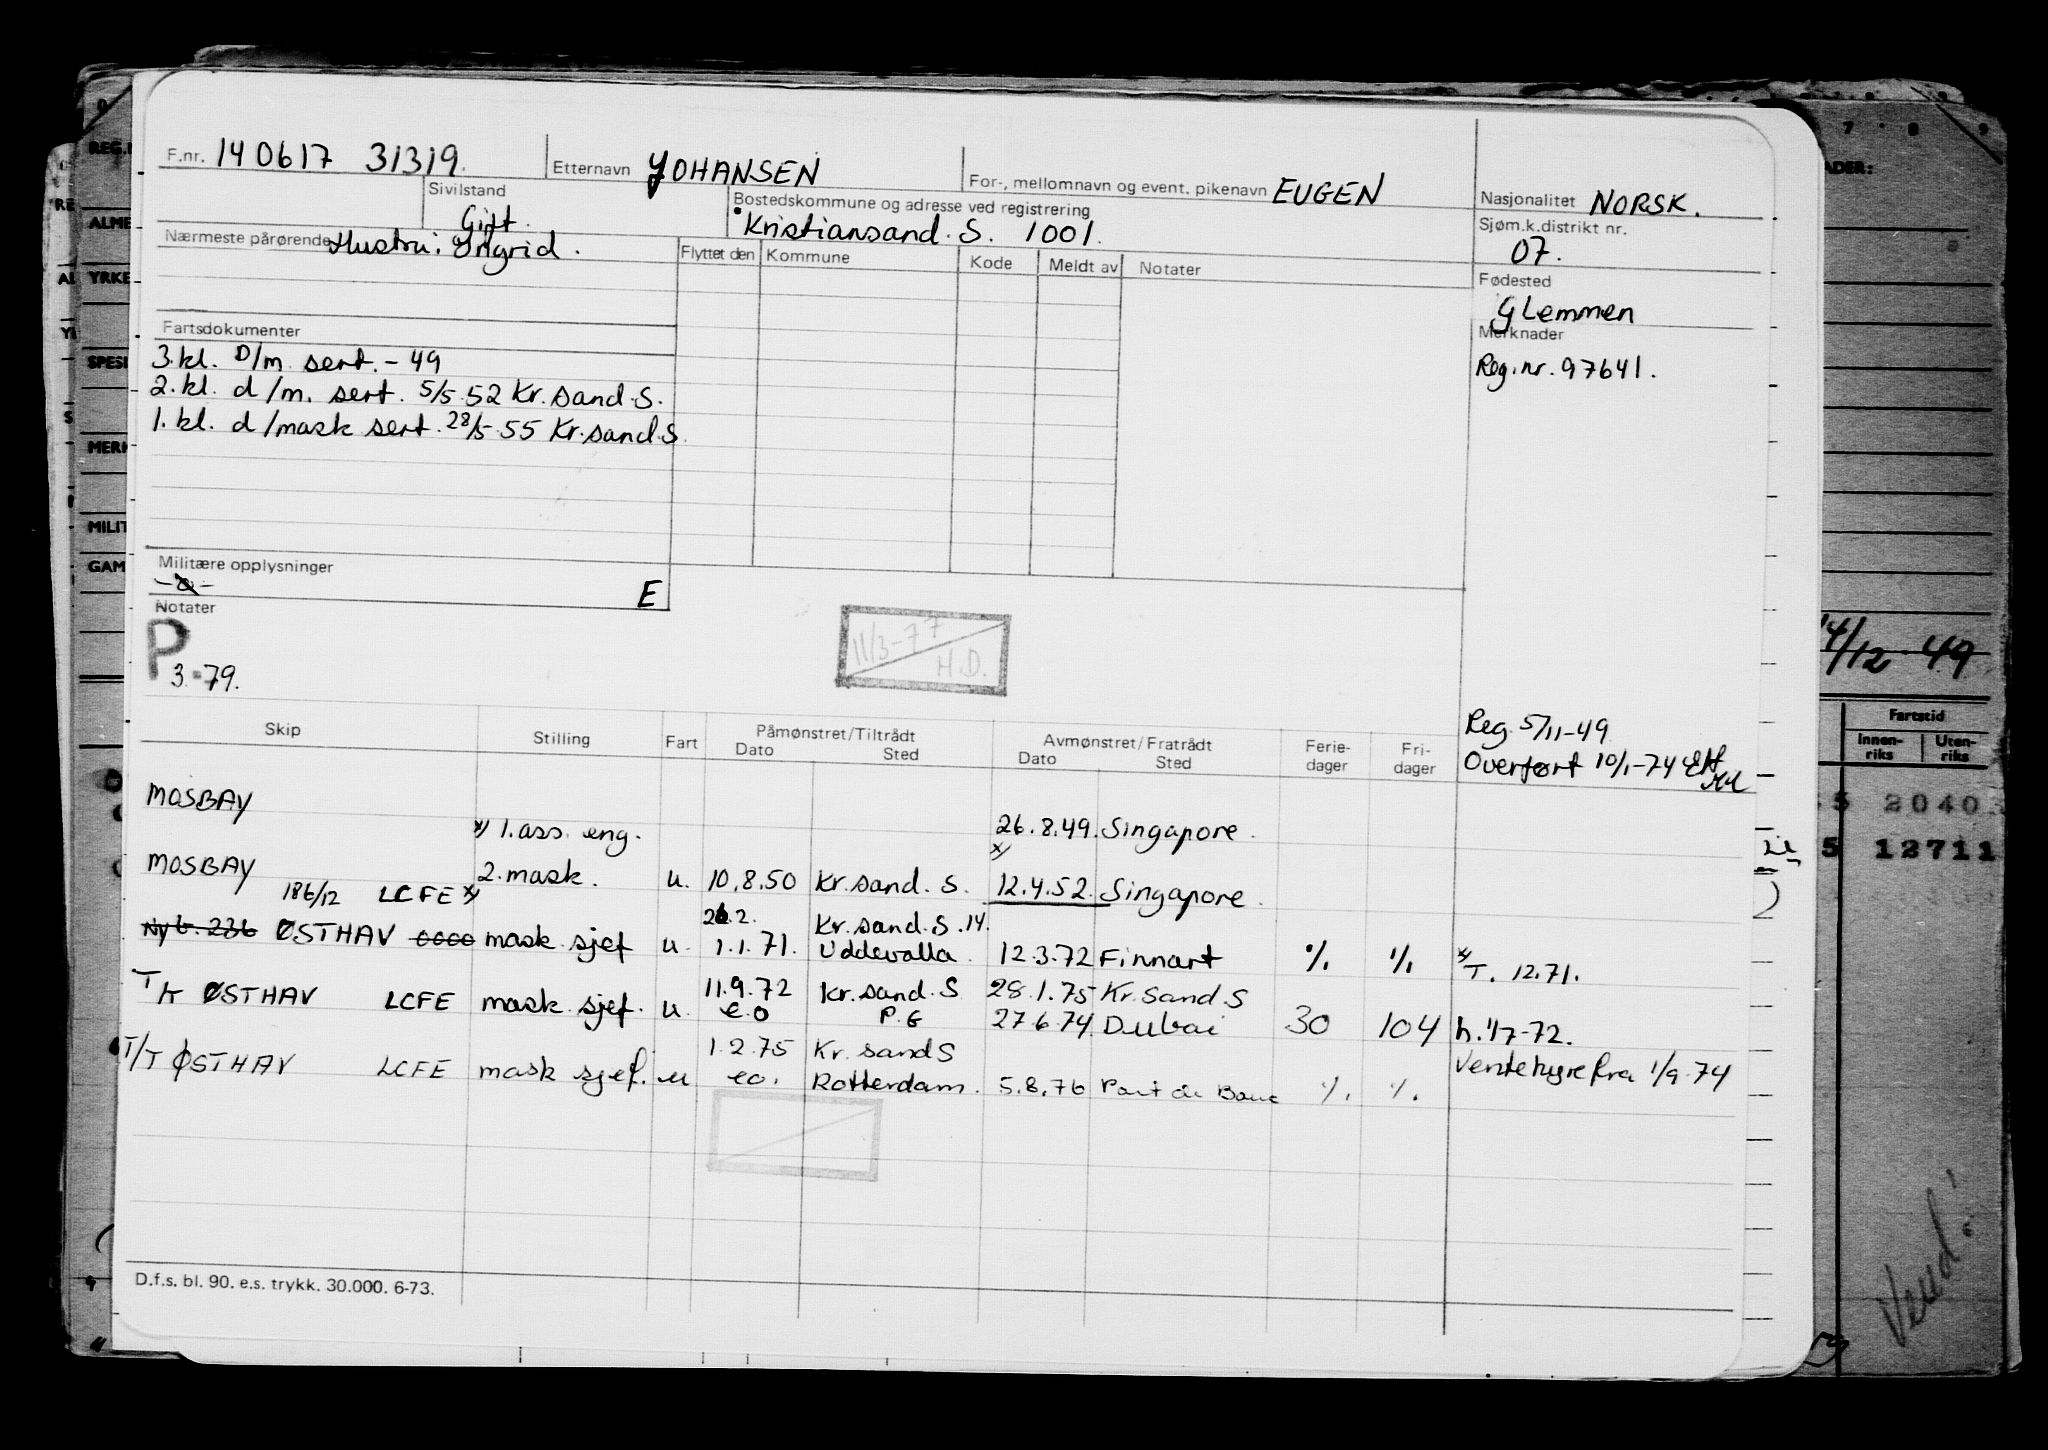 F.nr. 140617 31319. Etternavn JOHANSEN For-, mellomnavn og event. pikenavn EUGEN Nasjonalitet NORSK.
Sivilstand Gift. Bostedskommune og adresse ved registrering Kristiansand. S. 1001. Sjøm.k.distrikt nr. 07.
Nærmeste pårørende Hustru: Ingrid. Flyttet den Kommune Kode Meldt av Notater
Fødested Glemmen
Fartsdokumenter
Merknader
3.kl. D/m sert. - 49
Reg.nr. 97641.
2.kl. d/m. sert. 5/5.52 Kr.sand.S.
1.kl. d/mask sert. 28/5.55 Kr.sand.S
Militære opplysninger
E
Notater
P
3.-79.
11/3-77
H.D.
Reg. 5/11-49
Overført 10/1-74
Skip Stilling Fart Påmønstret/Tiltrådt Dato Sted Avmønstret/Fratrådt Dato Sted Ferie-dager Fri-dager
MOSBAY
x) 1.ass. eng. 26.8.49. Singapore.
x)
MOSBAY 2.mask. u. 10.8.50 Kr.sand. S. 12.4.52. Singapore.
186/12 LCFE x)
26.2. Kr.sand.S.14.
Nyb. 236 ØSTHAV 0000 mask.sjef u. 1.1.71. Uddevalla. 12.3.72 Finnart % % x) T. 12.71.
11.9.72 Kr.sand.S 28.1.75 Kr.sand.S
T/T ØSTHAV LCFE mask.sjef. u. e.o P.G 27.6.74 Dubai 30 104 h. 1/7-72.
1.2.75 Kr.sand S
Ventehyre fra 1/9-74
T/T ØSTHAV LCFE mask sjef. u eo. Rotterdam. 5.8.76 Port de Bouc % %.
D.f.s. bl. 90. e.s. trykk. 30.000. 6-73.
REG.
ALME
YRKE
SPESI
MERK
MILIT
GAM
ADER:
14/12-49
Fartstid
Innen-riks Uten-riks
5 2040
5 12711
Vend!